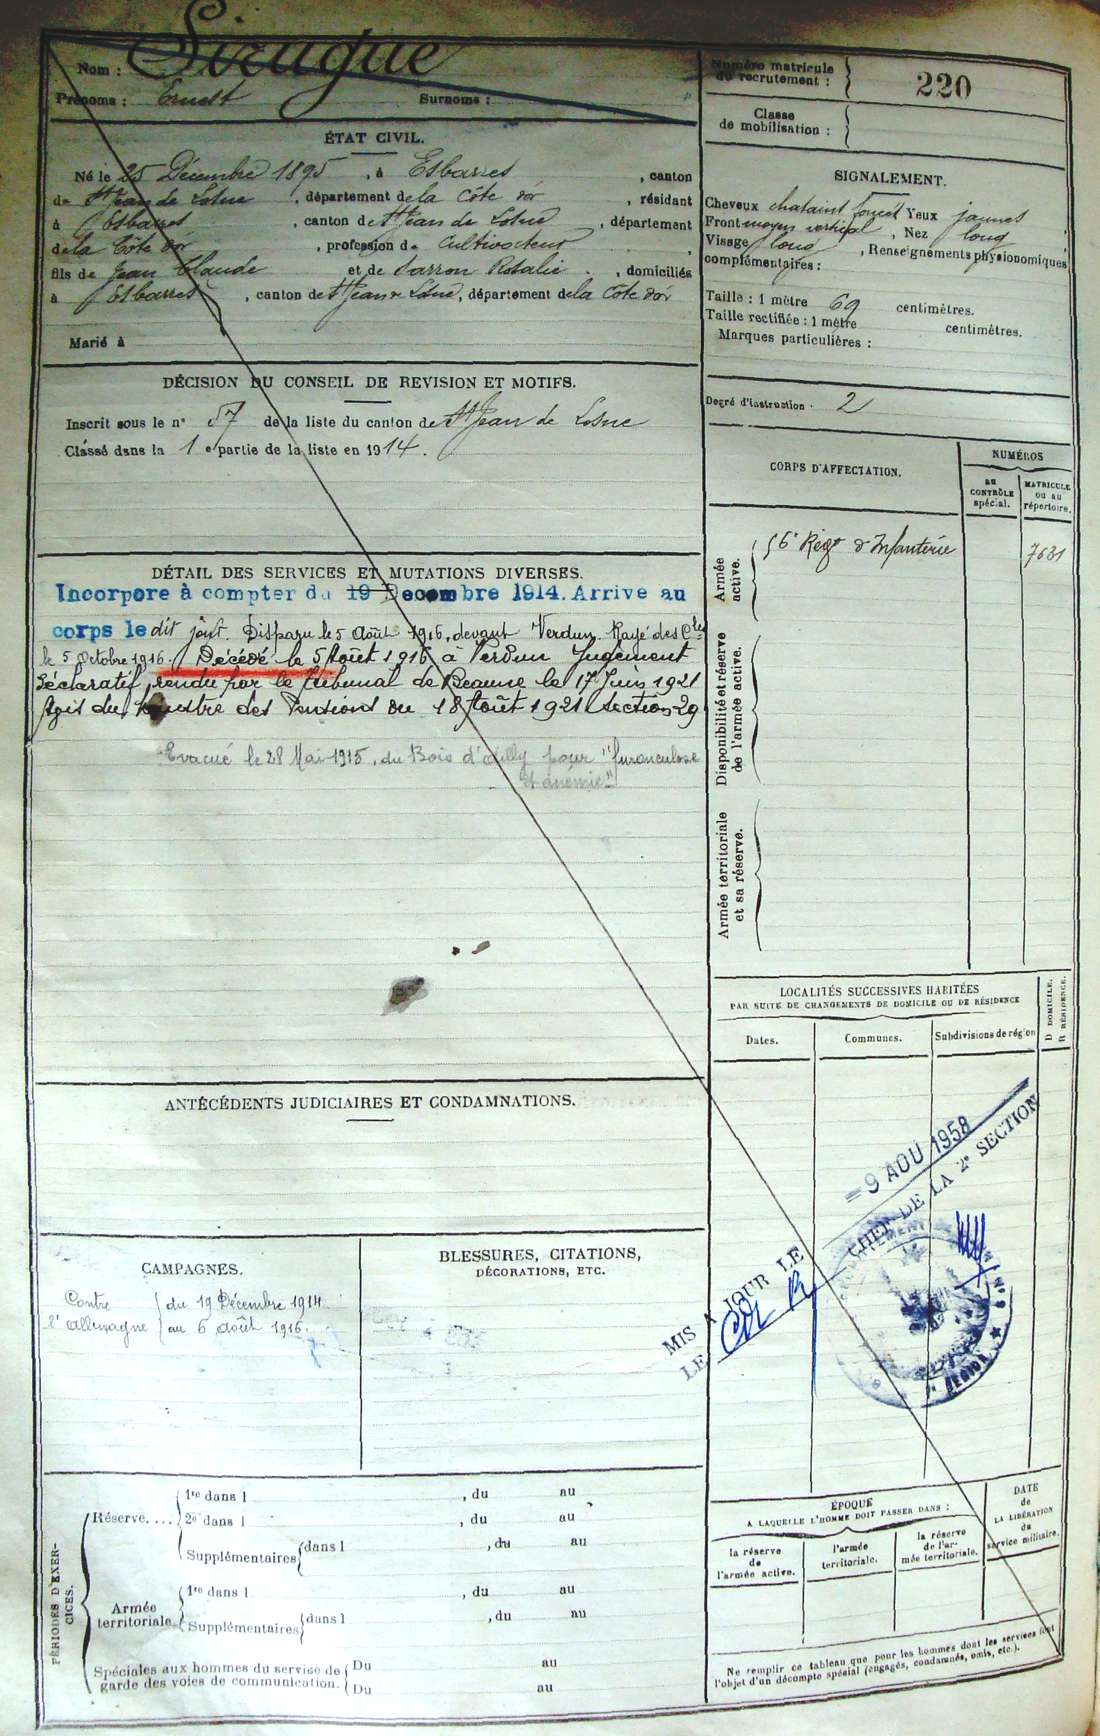 Nom : Sirugue
Prénoms : Ernest Surnoms :
ÉTAT CIVIL.
Né le 25 Décembre 1895, à Esbarres, canton
de St Jean de Losne, département de la Côte d'or, résidant
à Esbarres, canton de St Jean de Losne, département
de la Côte d'or, profession de cultivateur,
fils de Jean Claude et de Sarron Rosalie, domiciliés
à Esbarres, canton de St Jean de Losne, département de la Côte d'or
Marié à
DÉCISION DU CONSEIL DE REVISION ET MOTIFS.
Inscrit sous le n° 57 de la liste du canton de St Jean de Losne
Classé dans la 1 e partie de la liste en 1914.
DÉTAIL DES SERVICES ET MUTATIONS DIVERSES.
Incorporé à compter du 19 Decembre 1914. Arrive au
corps le dit jour. Disparu le 5 Août 1916, devant Verdun. Rayé des Cles
le 5 Octobre 1916. Décédé le 5 Août 1916 à Verdun Jugement
déclaratif rendu par le Tribunal de Beaune le 17 Juin 1921
Avis du Ministre des Pensions du 18 Août 1921 Section 29
Evacué le 28 Mai 1915, du Bois d'Ailly pour "furonculose
et anémie"
ANTÉCÉDENTS JUDICIAIRES ET CONDAMNATIONS.
CAMPAGNES.
Contre l'Allemagne
du 19 Décembre 1914
au 6 août 1916.
BLESSURES, CITATIONS,
DÉCORATIONS, ETC.
PÉRIODES D'EXERCICES.
Réserve....
1re dans l , du au
2e dans l , du au
Supplémentaires dans l , du au
Armée territoriale
1re dans l , du au
Supplémentaires dans l , du au
Spéciales aux hommes du service de garde des voies de communication.
Du au
Du au
Numéro matricule
du recrutement :
220
Classe
de mobilisation :
SIGNALEMENT.
Cheveux chatains foncés Yeux jaunes
Front moyen vertical, Nez long
Visage long, Renseignements physionomiques
complémentaires :
Taille : 1 mètre 69 centimètres.
Taille rectifiée : 1 mètre centimètres.
Marques particulières :
Degré d'instruction : 2
CORPS D'AFFECTATION.
NUMÉROS
au CONTRÔLE spécial.
MATRICULE ou au répertoire.
Armée active.
56e Régt d'Infanterie 7631
Disponibilité et réserve de l'armée active.
Armée territoriale et sa réserve.
LOCALITÉS SUCCESSIVES HABITÉES
PAR SUITE DE CHANGEMENTS DE DOMICILE OU DE RÉSIDENCE
D DOMICILE.
R RÉSIDENCE.
Dates. Communes. Subdivisions de région
MIS A JOUR LE -9 AOU 1958
LE CHEF DE LA 2e SECTION
ÉPOQUE
A LAQUELLE L'HOMME DOIT PASSER DANS :
la réserve de l'armée active.
l'armée territoriale.
la réserve de l'armée territoriale.
DATE de LA LIBÉRATION du service militaire.
Ne remplir ce tableau que pour les hommes dont les services font
l'objet d'un décompte spécial (engagés, condamnés, omis, etc.).